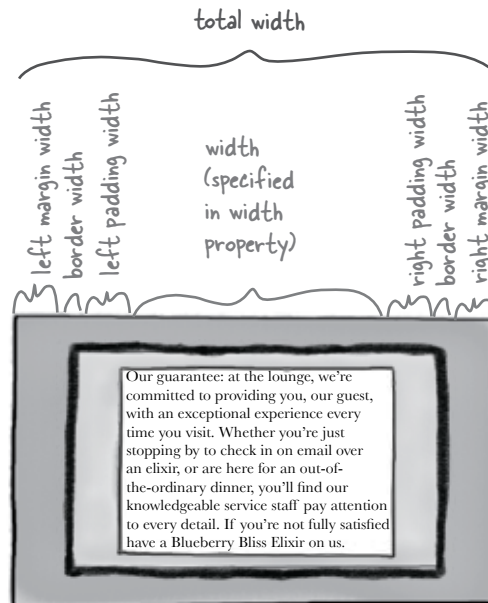 total width
left margin width
border width
left padding width
width
(specified
in width
property)
right padding width
border width
right margin width
Our guarantee: at the lounge, we're
committed to providing you, our guest,
with an exceptional experience every
time you visit. Whether you're just
stopping by to check in on email over
an elixir, or are here for an out-of-
the-ordinary dinner, you'll find our
knowledgeable service staff pay attention
to every detail. If you're not fully satisfied
have a Blueberry Bliss Elixir on us.